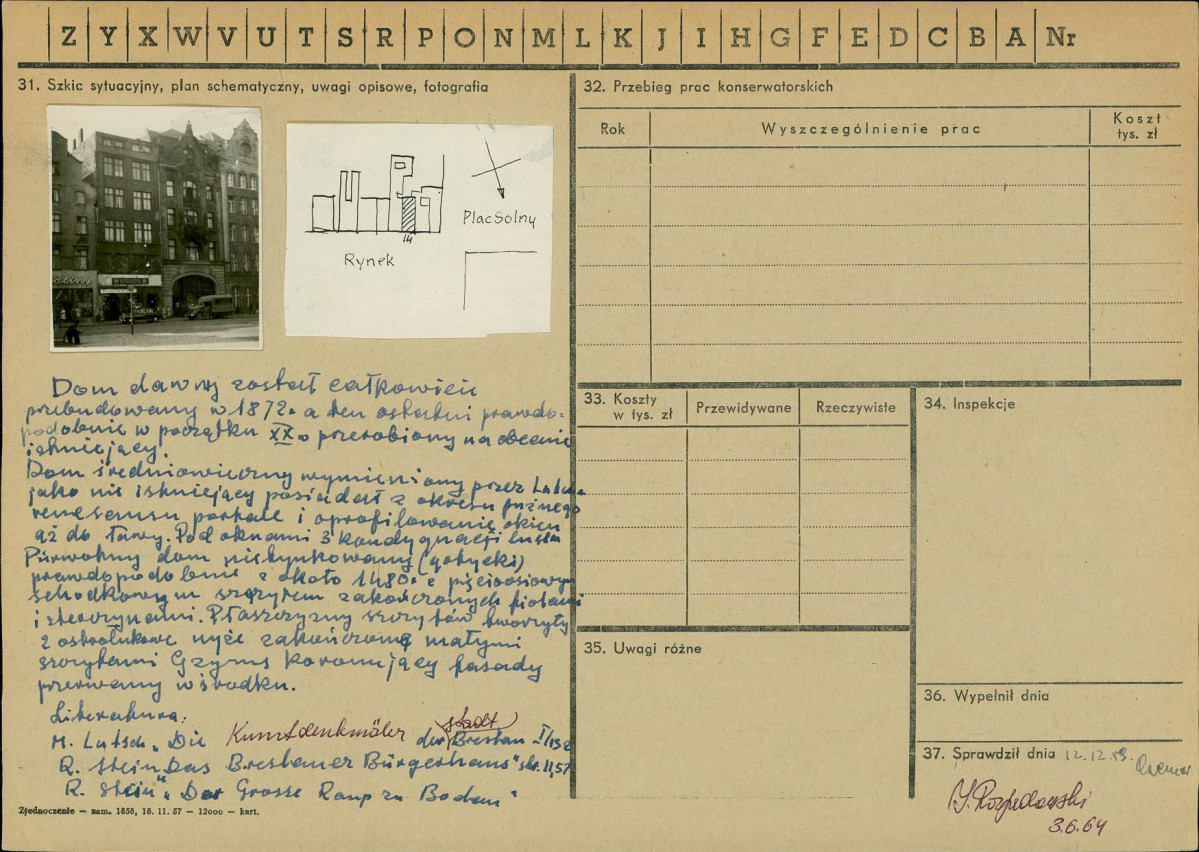 Z Y X W V U T S R P O N M L K J I H G F E D C B A Nr
31. Szkic sytuacyjny, plan schematyczny, uwagi opisowe, fotografia
14
Rynek
Plac Solny
Dom dawny został całkowicie
przebudowany w 1872r. a ten ostatni prawdo-
podobnie w początku XX w przerobiony na obecnie
istniejący.
Dom średniowieczny wymieniony przez Lutscha
jako nie istniejący posiadał z okresu późnego
renesansu portale i oprofilowanie okien
aż do ławy. Pod oknami 3 kondygnacji
Pierwotny dom nietynkowany (gotycki)
prawdopodobnie z około 1480r. z pięcioosiowym
schodkowym szczytem zakończonych fialami
i sterczynami. Płaszczyzny szczytów tworzyły
2 ostrołukowe nyże zakończone małymi
szczytami Gzyms koronujący fasady
przerwany w środku.
Literatura:
M. Lutsch „Die Kunstdenkmäler der Stadt Breslau I/132
R. Stein „Das Breslauer Bürgerhaus" str. 11, 57
R. Stein „Der Grosse Ring zu
Zjednoczenie — zam. 1858, 16. 11. 57 — 12000 — kart.
32. Przebieg prac konserwatorskich
Rok
Wyszczególnienie prac
Koszt
tys. zł
33. Koszty
w tys. zł
Przewidywane
Rzeczywiste
34. Inspekcje
35. Uwagi różne
36. Wypełnił dnia
37. Sprawdził dnia 12.12.59.
3.6.64